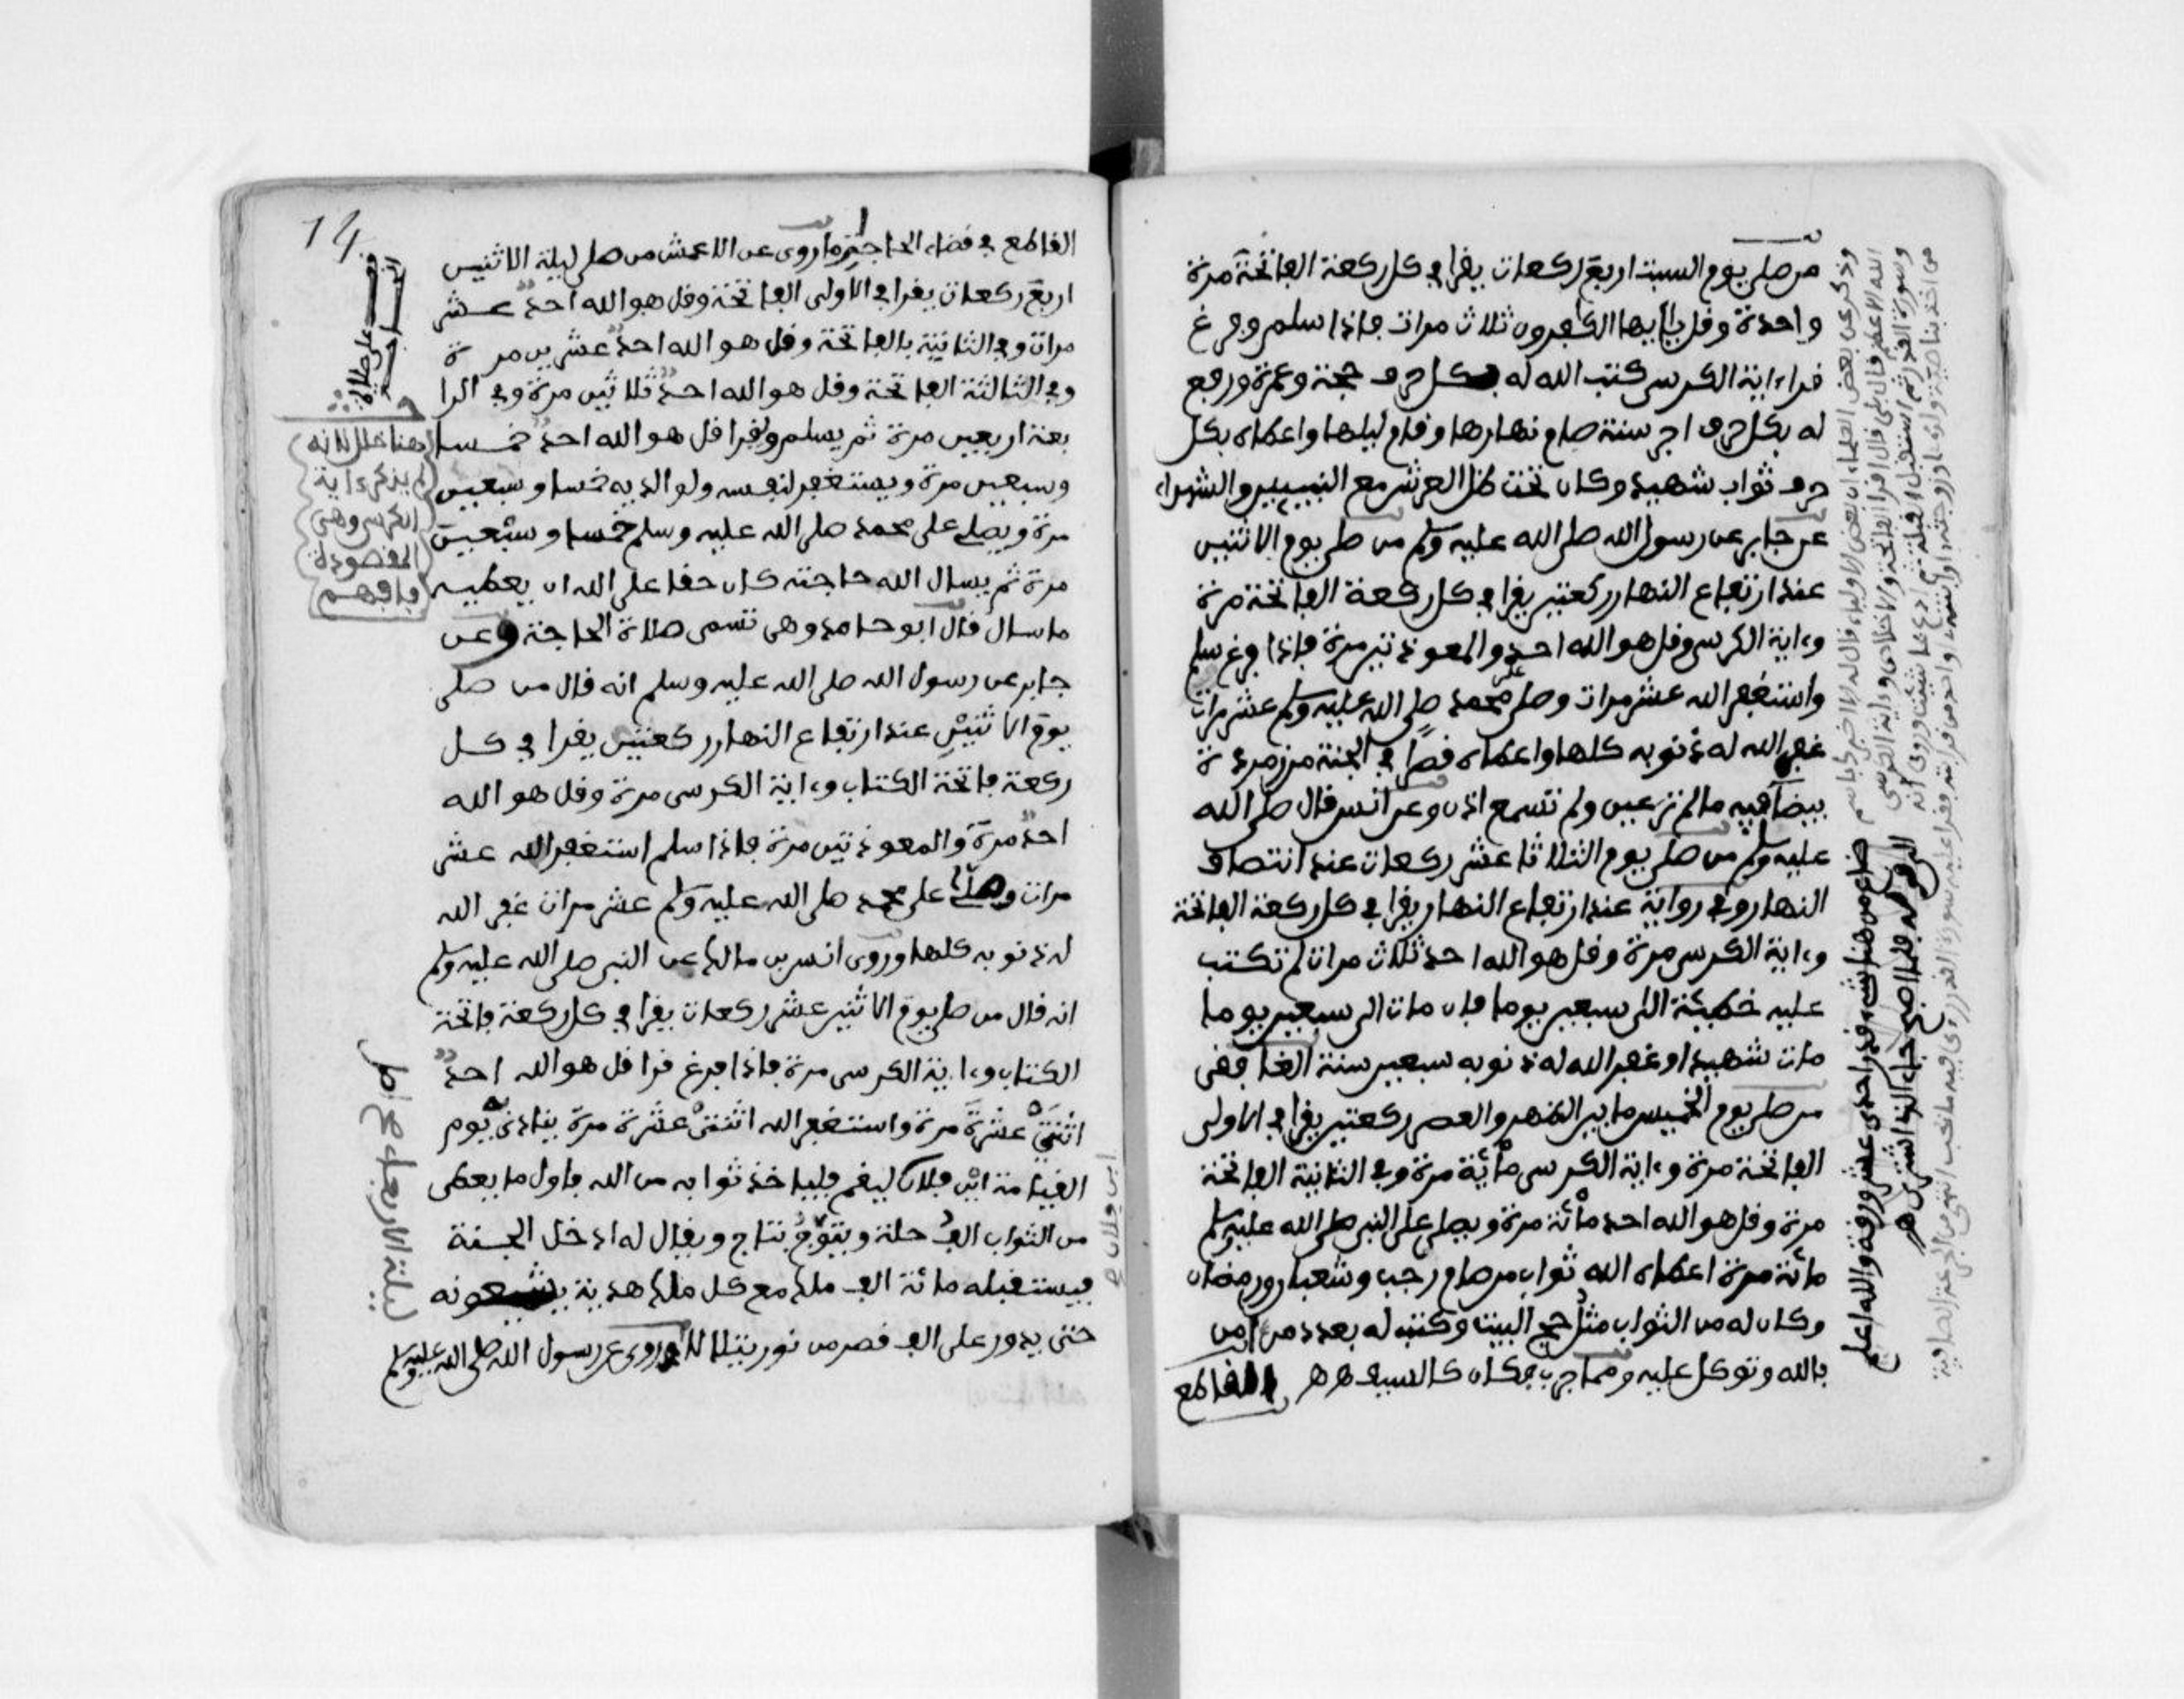 من صلى يوم السبت اربع ركعات يقرا في كل ركعة الفاتحة مرة
واحدة وقل يأيها الكفرون ثلاث مرات فاذا سلم وفرغ
قراءاية الكرسي كتب الله له بكل حرف حجة وعمرة ورفع
له بكل حرف اجر سنة صام نهارها وقام ليلها واعطاه بكل
حرف ثواب شهيد وكان تحت ظل العرش مع النبيين والشهداء
عن جابر عن رسول الله صلى الله عليه وسلم من صلى يوم الاثنين
عند ارتفاع النهار ركعتين يقرا في كل ركعة الفاتحة مرة
وءاية الكرسي وقل هو الله احد والمعوذتين مرة فاذا فرغ سلم
واستغفر الله عشر مرات وصلى على محمد صلى الله عليه وسلم عشر مرات
غفر الله له ذنوبه كلها واعطاه قصرا في الجنة من زمردة
بيضا فيه ما لم تر عين ولم تسمع اذن وعن انس قال صلى الله
عليه وسلم من صلى يوم الثلاثا عشر ركعات عند انتصاف
النهار وفي رواية عند ارتفاع النهار يقرا في كل ركعة الفاتحة
وءاية الكرسي مرة وقل هو الله احد ثلاث مرات لم تكتب
عليه خطيئة الى سبعين يوما فان مات الى سبعين يوما
مات شهيدا وغفر الله له ذنوبه سبعين سنة
من صلى يوم الخميس ما بين الظهر والعصر ركعتين يقرا في الاولى
الفاتحة مرة وءاية الكرسي مائة مرة وفي الثانية الفاتحة
مرة وقل هو الله احد مائة مرة ويصلي على النبي صلى الله عليه وسلم
مائة مرة اعطاه الله ثواب من صام رجب وشعبان ورمضان
وكان له من الثواب مثل حج البيت وكتب له بعدد من امن
بالله وتوكل عليه ومما جرب فكان كالسيف هـ هـ القاطع
وذكر عن بعض العلماء ان بعض الاولياء قال له الا اخبركم باسم
الله الاعظم قال بلى قال اقرا الفاتحة والاخلاص وءاية الكرسي
وسورة القدر ثم استقبل القبلة ثم ادع بما شئت وروي انه
ضاع من هنا شيء قدر احدى عشر ورقة والله اعلم
14
القاطع في قضاء الحاجة ما روى عن الاعمش من صلى ليلة الاثنين
اربع ركعات يقرا في الاولى الفاتحة وقل هو الله احد عشر
مرات وفي الثانية بالفاتحة وقل هو الله احد عشرين مرة
وفي الثالثة الفاتحة وقل هو الله احد ثلاثين مرة وفي الرا
بعة اربعين مرة ثم يسلم ويقرا قل هو الله احد خمسا
وسبعين مرة ويستغفر لنفسه ولوالديه خمسا وسبعين
مرة ويصلي على محمد صلى الله عليه وسلم خمسا وسبعين
مرة ثم يسال الله حاجته كان حقا على الله ان يعطيه
ما سال قال ابو حامد وهي تسمى صلاة الحاجة وعن
جابر عن رسول الله صلى الله عليه وسلم انه قال من صلى
يوم الاثنين عند ارتفاع النهار ركعتين يقرا في كل
ركعة فاتحة الكتاب وءاية الكرسي مرة وقل هو الله
احد مرة والمعوذتين مرة فاذا سلم استغفر الله عشر
مرات وصلى على محمد صلى الله عليه وسلم عشر مرات غفر الله
له ذنوبه كلها وروى انس بن مالك عن النبي صلى الله عليه وسلم
انه قال من صلى يوم الاثنين عشر ركعات يقرا في كل ركعة فاتحة
الكتاب وءاية الكرسي مرة فاذا فرغ قرا قل هو الله احد
اثنتي عشرة مرة واستغفر الله اثنتي عشرة مرة ينادى يوم
القيامة اين فلان ليقم فلياخذ ثوابه من الله فاول ما يعطى
من الثواب الف حلة ويتوج بتاج ويقال له ادخل الجنة
فيستقبله مائة الف ملك مع كل ملك هدية يشيعونه
حتى يدور على الف قصر من نور يتلالا وروى عن رسول الله صلى الله عليه وسلم
هنا خلل لانه
لم يذكر ءاية
الكرسي وهي
المقصودة
فافهم
ليلة الاربعاء